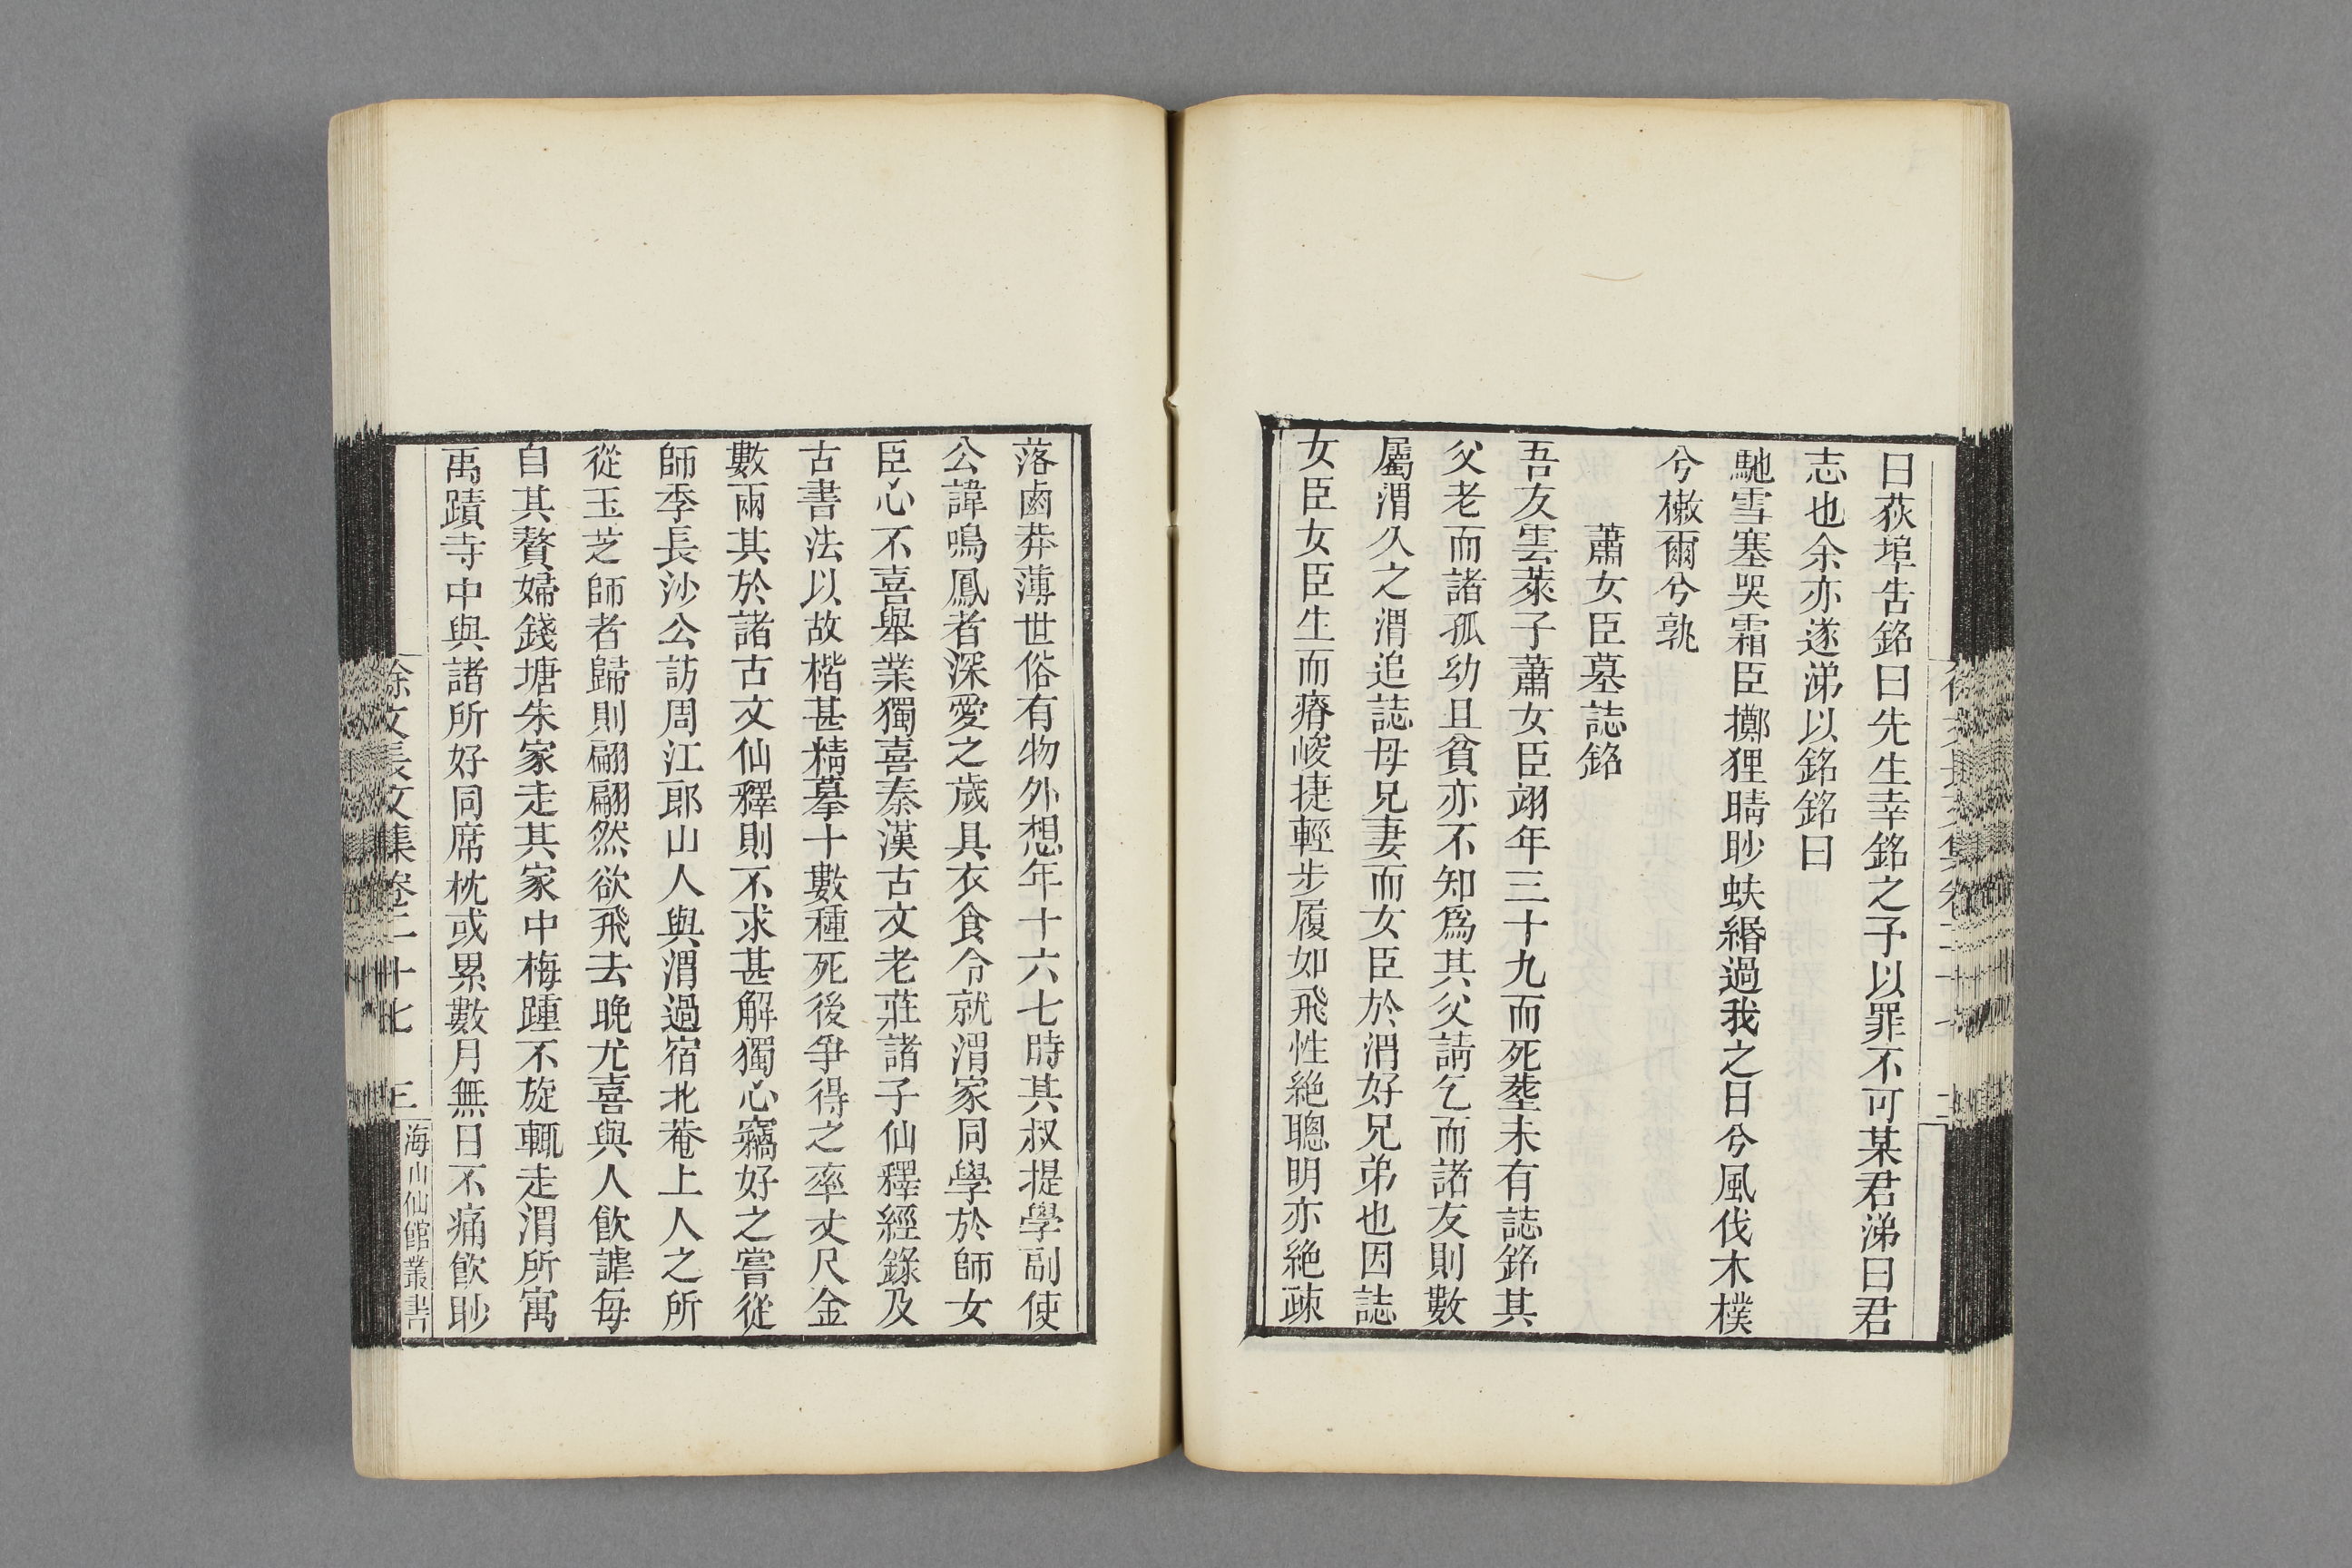 曰荻埠告銘曰先生幸銘之子以罪不可某君涕曰君
志也余亦遂涕以銘銘曰
馳雪塞哭霜臣擲狸晴眇蚨緡過我之日兮風伐木樸
兮橵爾兮孰
蕭女臣墓誌銘
吾友雲萊子蕭女臣翊年三十九而死塟未有誌銘其
父老而諸孤幼且貧亦不知爲其父請乞而諸友則數
屬渭久之渭追誌母兄妻而女臣於渭好兄弟也因誌
女臣女臣生而瘠峻捷輕步履如飛性絶聰明亦絶疎
落鹵莽薄世俗有物外想年十六七時其叔提學副使
公諱鳴鳳者深愛之歲具衣食令就渭家同學於師女
臣心不喜舉業獨喜秦漢古文老莊諸子仙釋經錄及
古書法以故楷甚精摹十數種死後爭得之率丈尺金
數兩其於諸古文仙釋則不求甚解獨心竊好之嘗從
師季長沙公訪周江郎山人與渭過宿北菴上人之所
從玉芝師者歸則翩翩然欲飛去晚尤喜與人飮謔每
自其贅婦錢塘朱家走其家中梅踵不旋輒走渭所寓
禹蹟寺中與諸所好同席枕或累數月無日不痛飮眇
徐文長文集卷二十七 三 海山仙館叢書